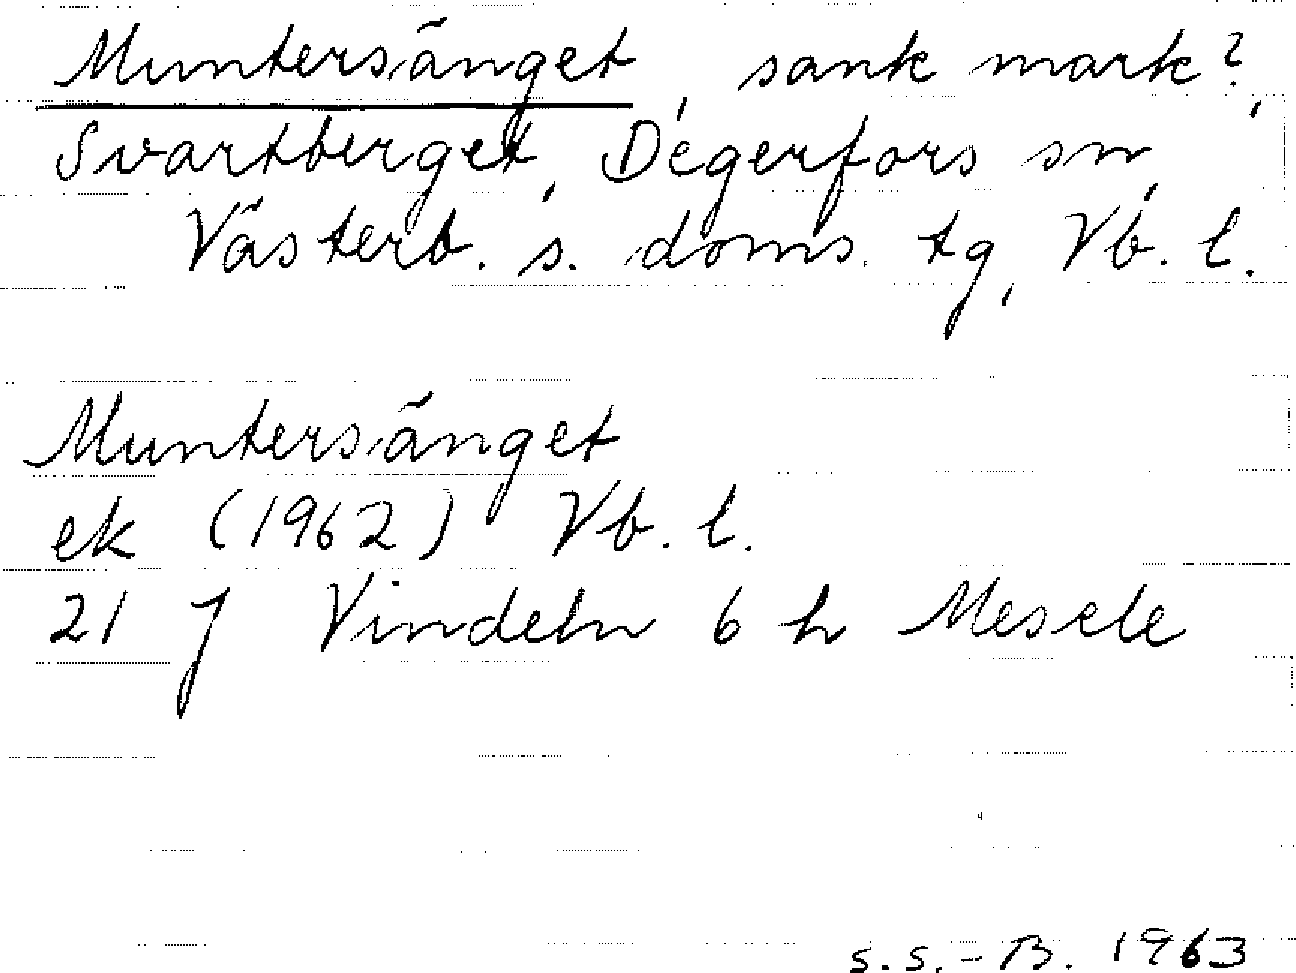 Muntersänget, sank mark?,
Svartberget, Degerfors sn,
Västerb. s. doms. tg, Vb. l.
Muntersänget
ek (1962) Vb. l.
21 J Vindeln 6 h Mesele
S.S.-B. 1963